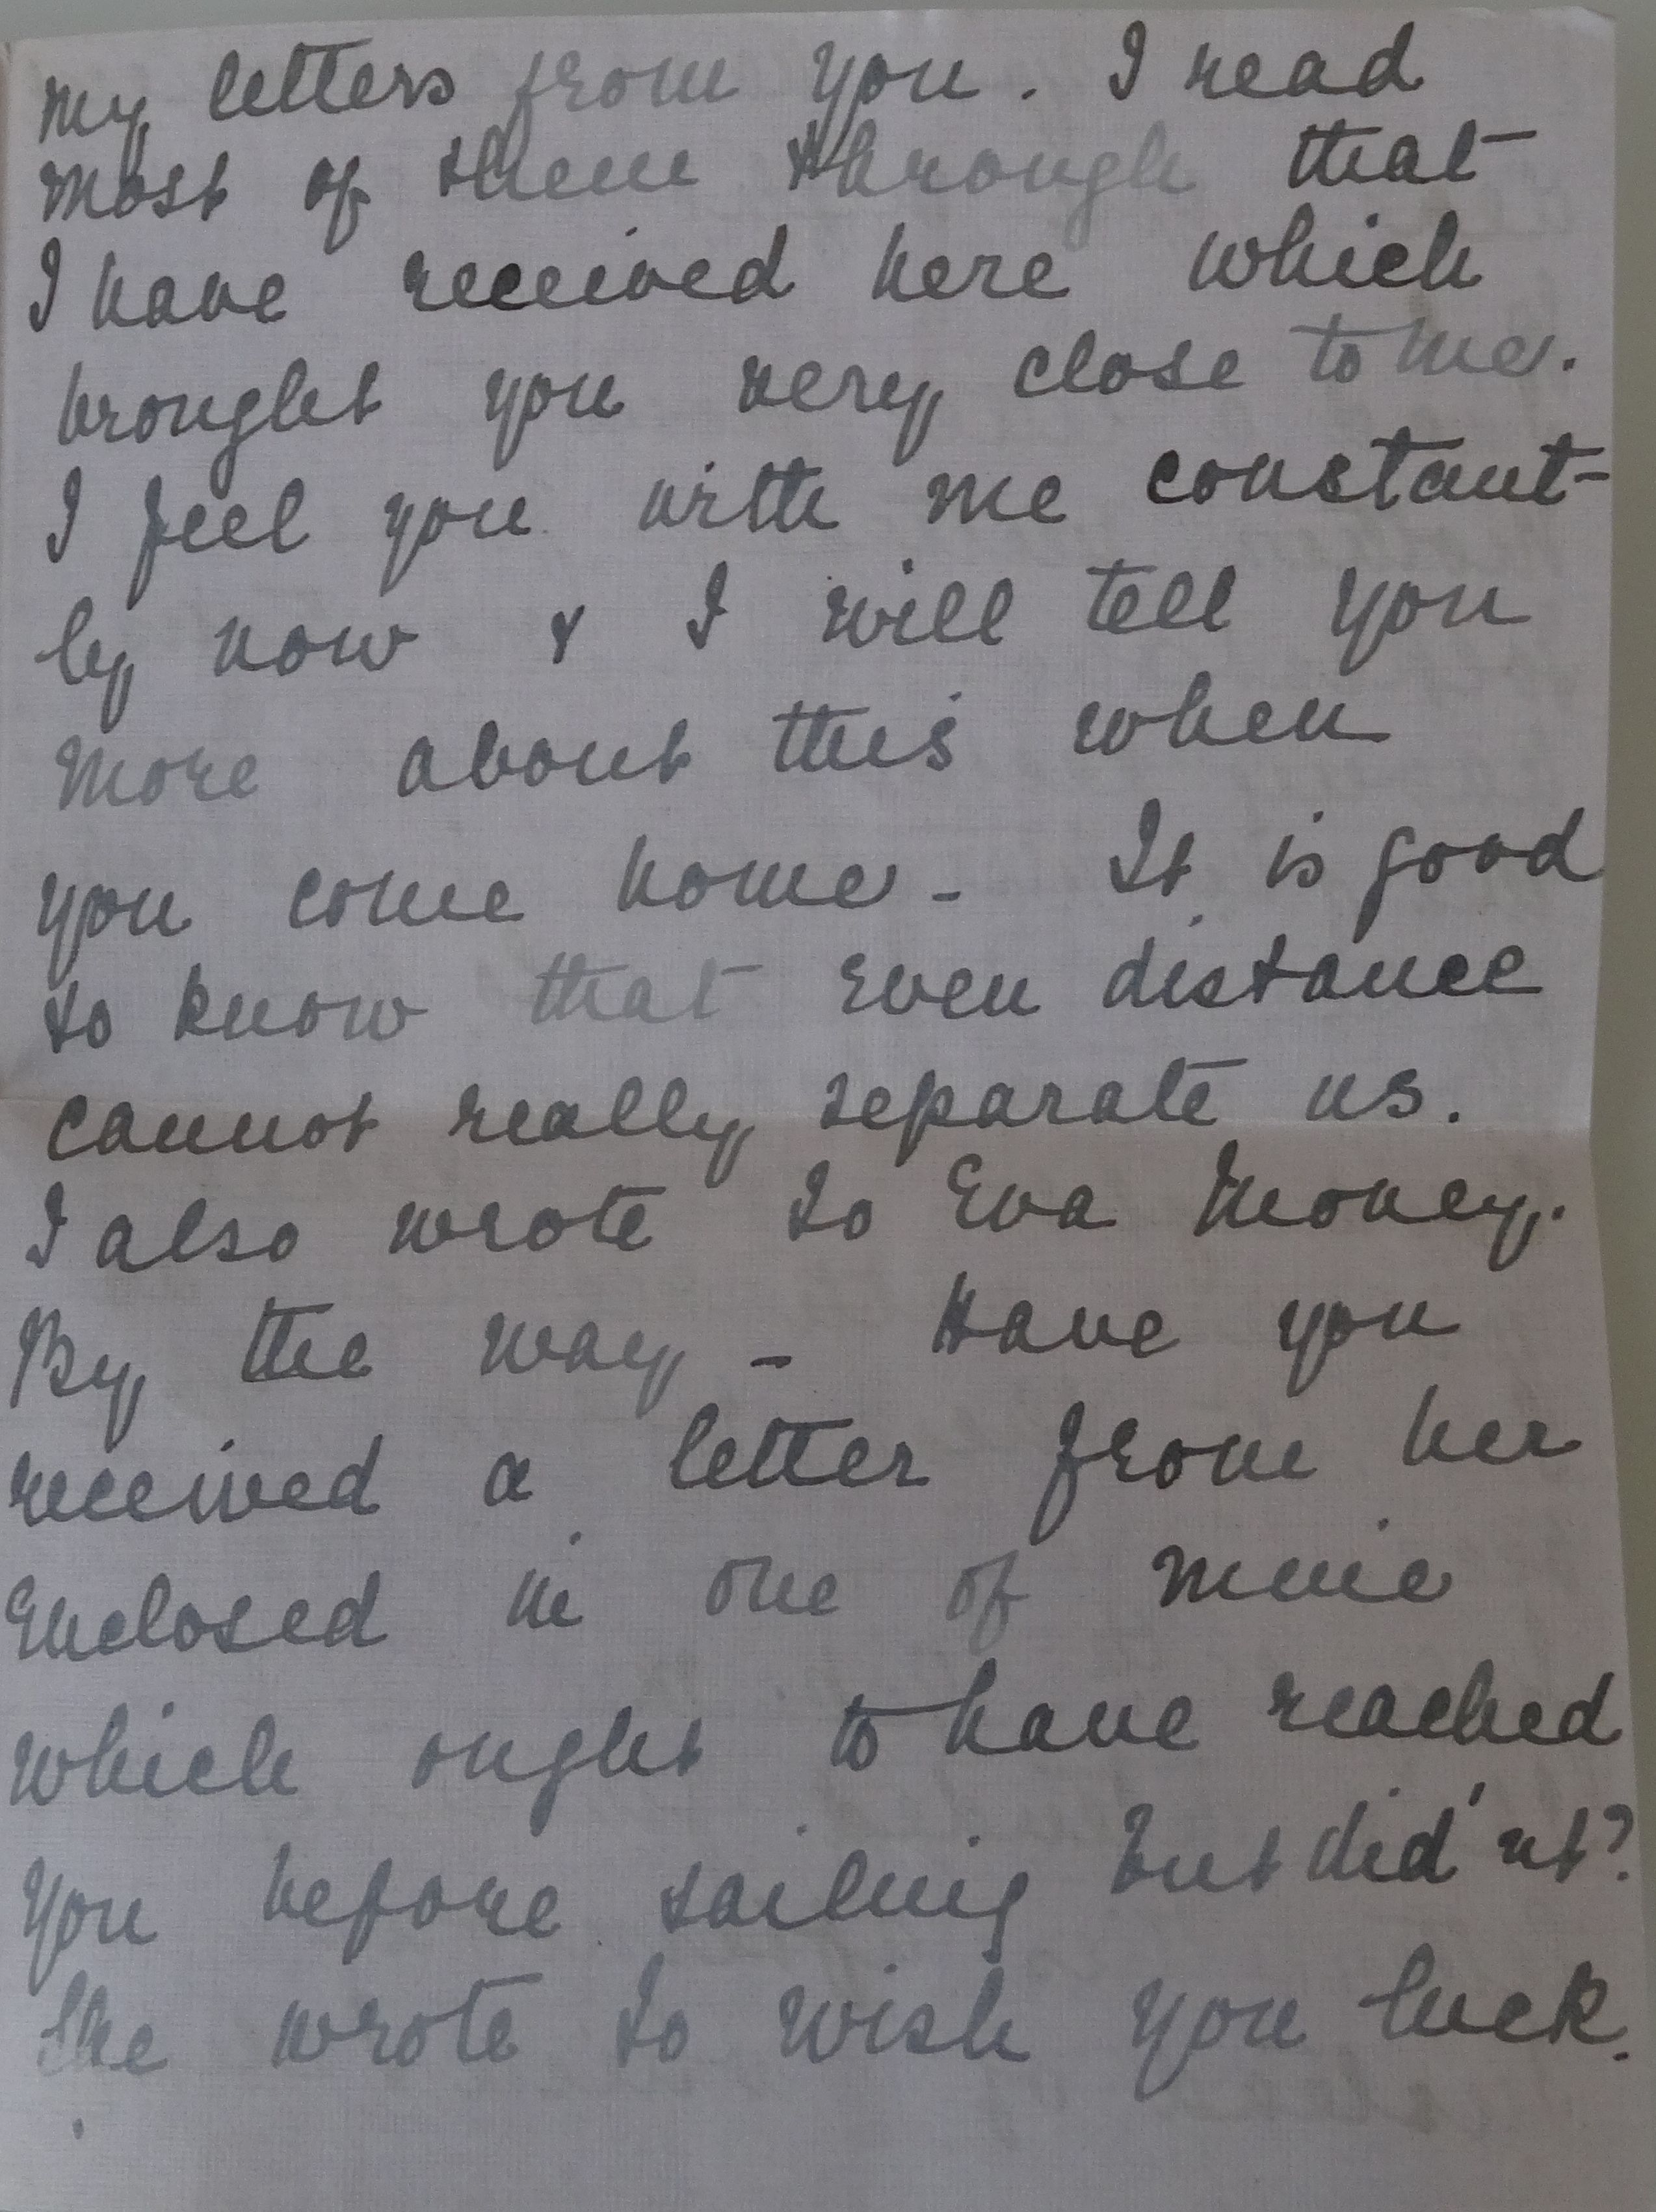 my letters from you. I read
most of them through that
I have received here which
brought you very close to me.
I feel you with me constant-
ly now & I will tell you
more about this when
you come home - It is good
to know that even distance
cannot really separate us.
I also wrote to Eva Money.
By the way - Have you
received a letter from her
enclosed in one of mine
which ought to have reached
you before sailing but did'nt?
She wrote to wish you luck.